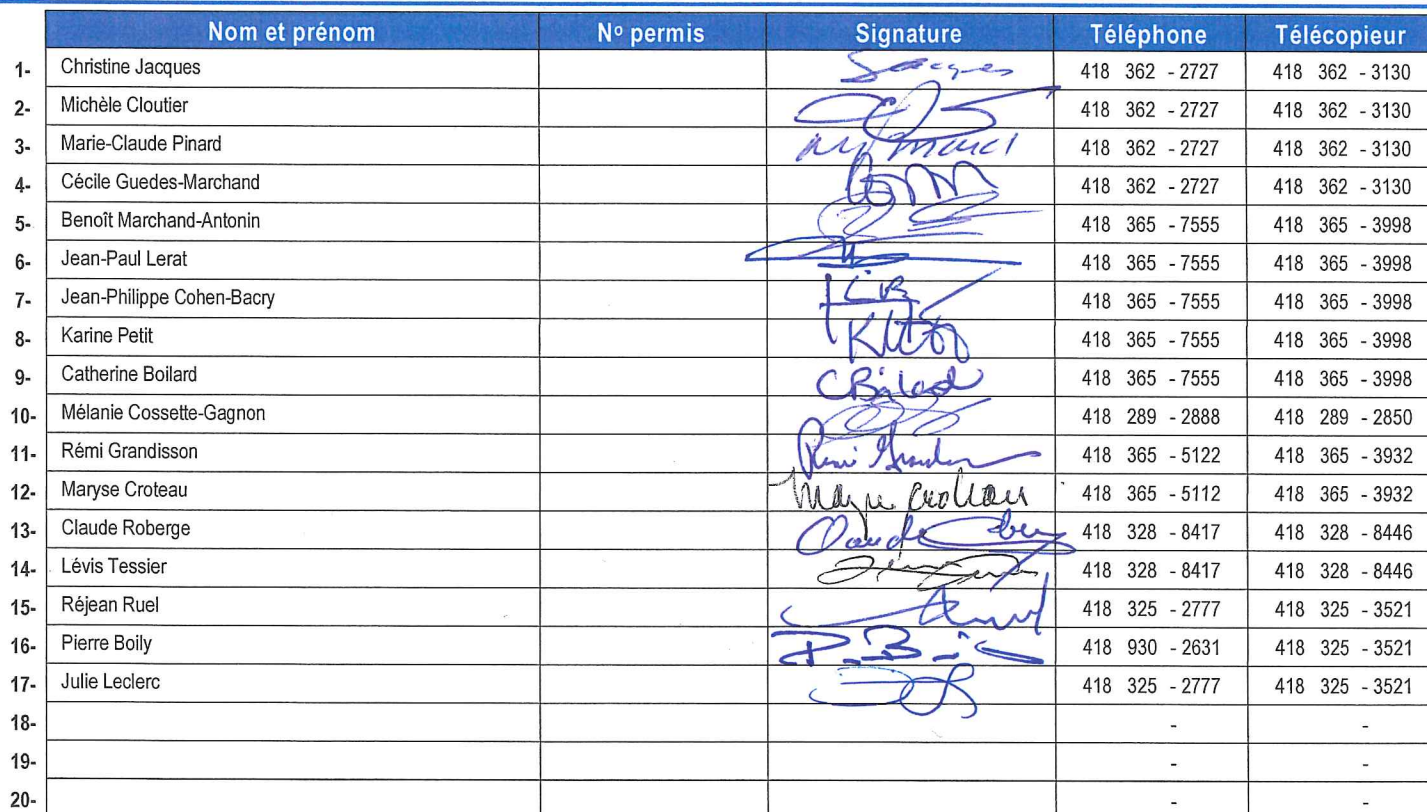 Nom et prénom No permis Signature Téléphone Télécopieur
1- Christine Jacques Jacques 418 362 - 2727 418 362 - 3130
2- Michèle Cloutier 418 362 - 2727 418 362 - 3130
3- Marie-Claude Pinard 418 362 - 2727 418 362 - 3130
4- Cécile Guedes-Marchand 418 362 - 2727 418 362 - 3130
5- Benoît Marchand-Antonin 418 365 - 7555 418 365 - 3998
6- Jean-Paul Lerat 418 365 - 7555 418 365 - 3998
7- Jean-Philippe Cohen-Bacry 418 365 - 7555 418 365 - 3998
8- Karine Petit 418 365 - 7555 418 365 - 3998
9- Catherine Boilard C Boilard 418 365 - 7555 418 365 - 3998
10- Mélanie Cossette-Gagnon 418 289 - 2888 418 289 - 2850
11- Rémi Grandisson Rémi 418 365 - 5122 418 365 - 3932
12- Maryse Croteau Maryse Croteau 418 365 - 5112 418 365 - 3932
13- Claude Roberge Claude 418 328 - 8417 418 328 - 8446
14- Lévis Tessier 418 328 - 8417 418 328 - 8446
15- Réjean Ruel 418 325 - 2777 418 325 - 3521
16- Pierre Boily 418 930 - 2631 418 325 - 3521
17- Julie Leclerc 418 325 - 2777 418 325 - 3521
18- - -
19- - -
20- - -